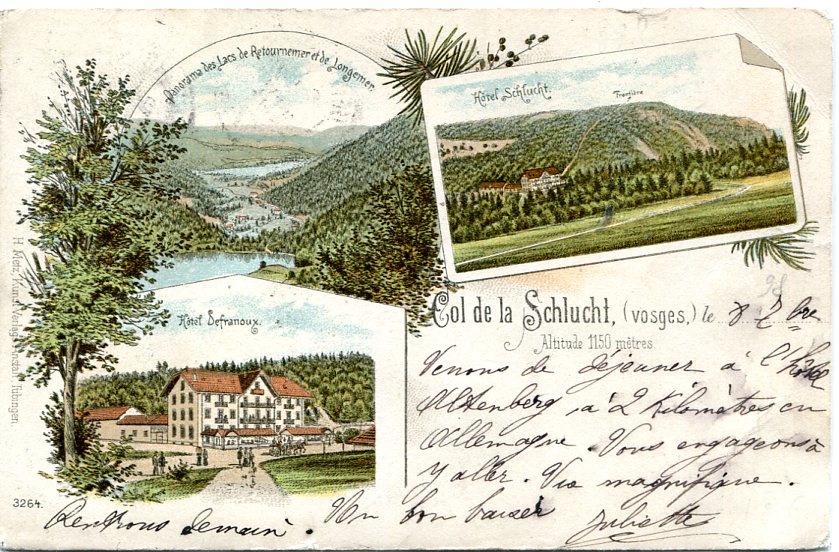 Panorama des Lacs de Retournemer et de Longemer.
Hôtel Schlucht.
Frontière
Hôtel Defranoux.
Col de la Schlucht, (vosges,) le 8 7bre
Altitude 1150 mètres
Venons de déjeuner à l'hôtel
Altenberg, à 2 Kilomètres en
Allemagne. Vous engageons à
y aller. Vue magnifique.
Rentrons demain. Un bon baiser Juliette
H. Metz, Kunst-Verlags-Anstalt, Tübingen.
3264.